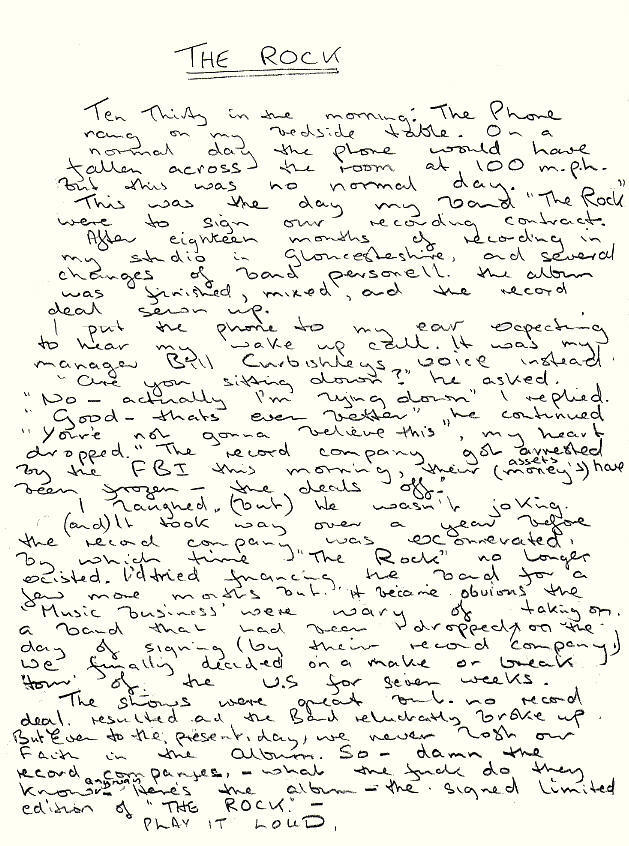 THE ROCK
Ten Thirty in the morning: The Phone
rang on my bedside table. On a
normal day the phone would have
fallen across the room at 100 m.p.h.
but this was no normal day.
This was the day my band "The Rock"
were to sign our recording contract.
After eighteen months of recording in
my studio in Gloucesteshire, and several
changes of band personell. the album
was finished, mixed, and the record
deal sewn up.
I put the phone to my ear expecting
to hear my wake up call. It was my
manager Bill Curbishleys voice instead.
"are you sitting down?" he asked.
"No - actually I'm lying down" I replied.
"Good - thats even better" he continued
"You're not gonna believe this", my heart
dropped." The record company got arrested
by the FBI this morning, their (money's) assets have
been frozen - the deals off."
I laughed. (but) He wasn't joking.
(and) It took way over a year before
the record company was exonnerated,
by which time "The Rock" no longer
existed. I'd tried financing the band for a
few more months but it became obvious the
'Music business' were wary of taking on
a band that had been dropped on the
day of signing (by their record company,)
We finally decided on a make or break
'tour' of the U.S for seven weeks.
The shows were great but no record
deal resulted and the Band reluctantly broke up.
But Even to the present day, we never lost our
Faith in the album. So - damn the
record companies, - what the fuck do they
know anyway - here's the album - the signed limited
edition of "THE ROCK" -
PLAY IT LOUD.